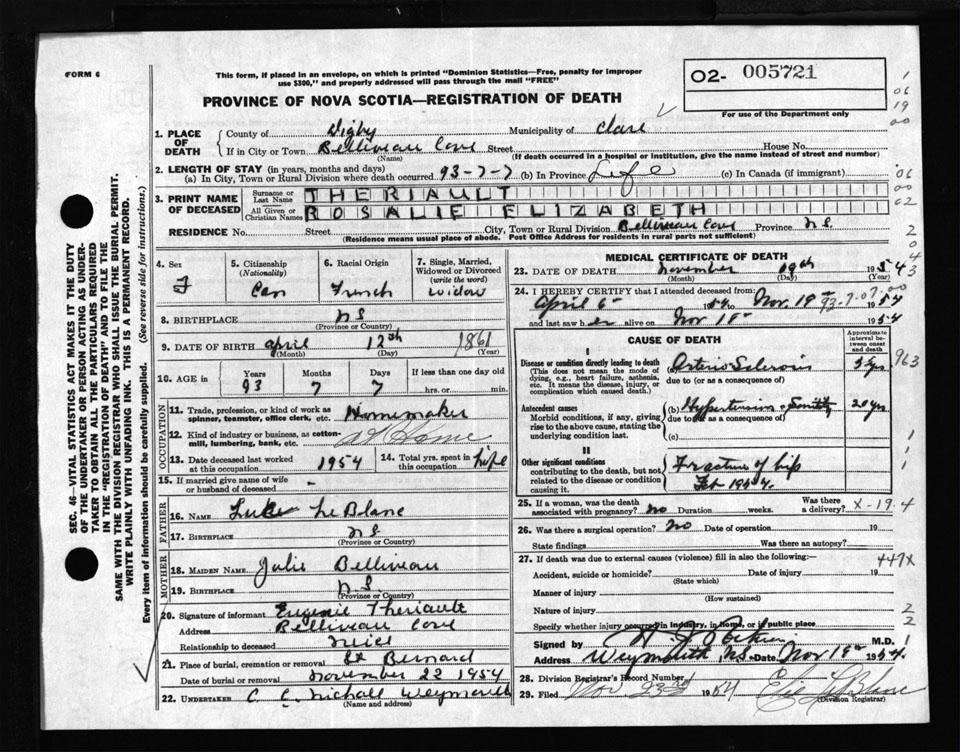 FORM 6
This form, if placed in an envelope, on which is printed "Dominion Statistics—Free, penalty for improper
use $300," and properly addressed will pass through the mail "FREE"
O2- 005721
For use of the Department only
PROVINCE OF NOVA SCOTIA—REGISTRATION OF DEATH
1. PLACE OF DEATH { County of Digby Municipality of Clare
If in City or Town Belliveau Cove Street House No.
(Name) (If death occurred in a hospital or institution, give the name instead of street and number)
2. LENGTH OF STAY (in years, months and days)
(a) In City, Town or Rural Division where death occurred 93-7-7 (b) In Province Life (c) In Canada (if immigrant)
3. PRINT NAME OF DECEASED { Surname or Last Name THERIAULT
All Given or Christian Names ROSALIE ELIZABETH
RESIDENCE No. Street City, Town or Rural Division Belliveau Cove Province N.S.
(Residence means usual place of abode. Post Office Address for residents in rural parts not sufficient)
SEC. 46—VITAL STATISTICS ACT MAKES IT THE DUTY
OF THE UNDERTAKER OR PERSON ACTING AS UNDER-
TAKER TO OBTAIN ALL THE PARTICULARS REQUIRED
IN THE "REGISTRATION OF DEATH" AND TO FILE THE
SAME WITH THE DIVISION REGISTRAR WHO SHALL ISSUE THE BURIAL PERMIT.
WRITE PLAINLY WITH UNFADING INK. THIS IS A PERMANENT RECORD.
Every item of information should be carefully supplied. (See reverse side for instructions.)
4. Sex F
5. Citizenship (Nationality) Can
6. Racial Origin French
7. Single, Married, Widowed or Divorced (write the word) Widow
8. BIRTHPLACE N S
(Province or Country)
9. DATE OF BIRTH April 12th 1861
(Month) (Day) (Year)
10. AGE in Years Months Days If less than one day old
93 7 7 hrs. or min.
OCCUPATION
11. Trade, profession, or kind of work as spinner, teamster, office clerk, etc. Homemaker
12. Kind of industry or business, as cotton-mill, lumbering, bank, etc. At Home
13. Date deceased last worked at this occupation 1954
14. Total yrs. spent in this occupation life
15. If married give name of wife or husband of deceased -
FATHER
16. NAME Luke LeBlanc
17. BIRTHPLACE N S
(Province or Country)
MOTHER
18. MAIDEN NAME Julie Belliveau
19. BIRTHPLACE N.S
(Province or Country)
20. Signature of informant Eugenie Theriault
Address Belliveau Cove
Relationship to deceased niece
21. Place of burial, cremation or removal St Bernard
Date of burial or removal November 22 1954
22. UNDERTAKER C. C. Nichall Weymouth
(Name and address)
MEDICAL CERTIFICATE OF DEATH
23. DATE OF DEATH November 19th 1954
(Month) (Day) (Year)
24. I HEREBY CERTIFY that I attended deceased from:
April 6 1954 to Nov. 19 1954
93-7-07.00
and last saw her alive on Nov 18 1954
CAUSE OF DEATH
Approximate interval between onset and death
I
Disease or condition directly leading to death
(This does not mean the mode of dying, e.g., heart failure, asthenia, etc. It means the disease, injury, or complication which caused death.)
(a) Arterio Sclerosis
due to (or as a consequence of)
Antecedent causes
Morbid conditions, if any, giving rise to the above cause, stating the underlying condition last.
(b) Hypertension & Senility 20 yrs
due to (or as a consequence of)
(c)
II
Other significant conditions
contributing to the death, but not related to the disease or condition causing it.
Fracture of hip
Feb 1954.
25. If a woman, was the death associated with pregnancy? No Duration weeks. Was there a delivery? X-19-4
26. Was there a surgical operation? No Date of operation 19
State findings Was there an autopsy?
27. If death was due to external causes (violence) fill in also the following:—
447X
Accident, suicide or homicide? Date of injury 19
(State which)
Manner of injury
(How sustained)
Nature of injury
Specify whether injury occurred in industry, in home, or in public place
Signed by M.D.
Address Weymouth NS Date Nov 19th 1954.
28. Division Registrar's Record Number
29. Filed Nov 23rd 1954
(Division Registrar)